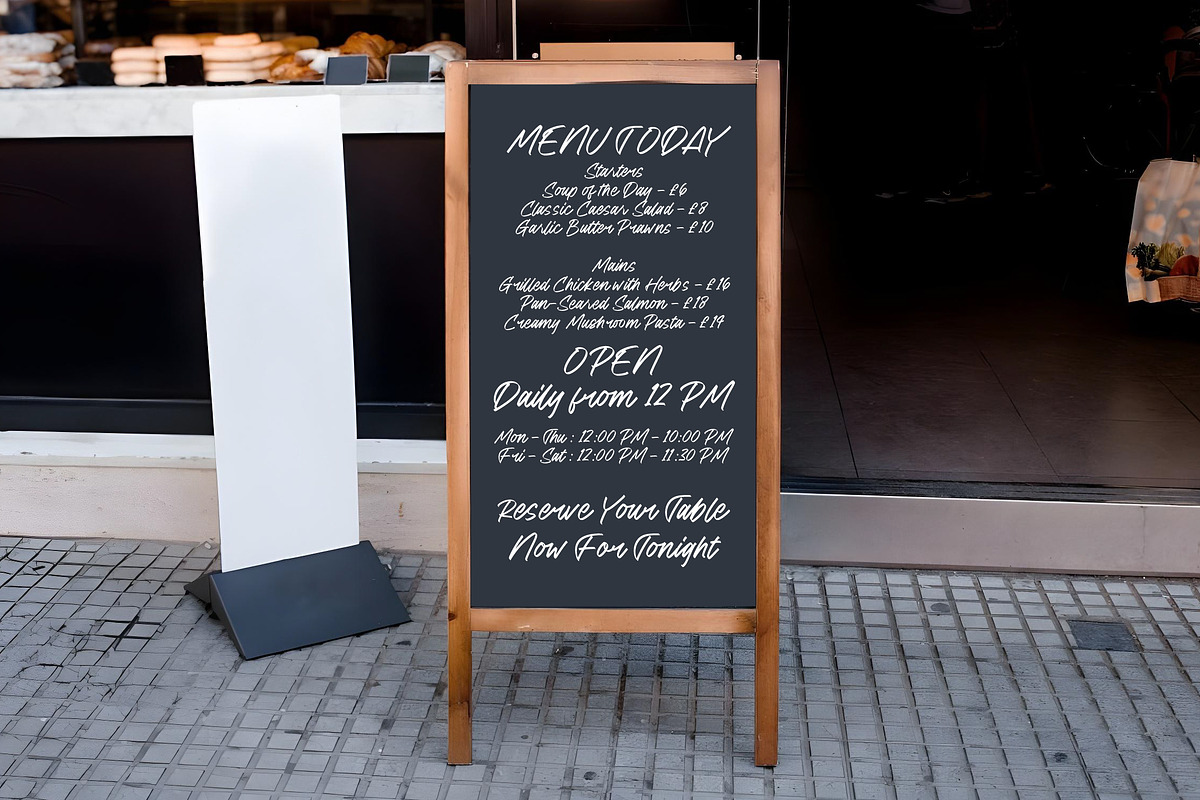 MENU TODAY
Starters
Soup of the Day - £6
Classic Caesar Salad - £8
Garlic Butter Prawns - £10
Mains
Grilled Chicken with Herbs - £16
Pan-Seared Salmon - £18
Creamy Mushroom Pasta - £14
OPEN
Daily from 12 PM
Mon - Thu : 12:00 PM - 10:00 PM
Fri - Sat : 12:00 PM - 11:30 PM
Reserve Your Table
Now For Tonight